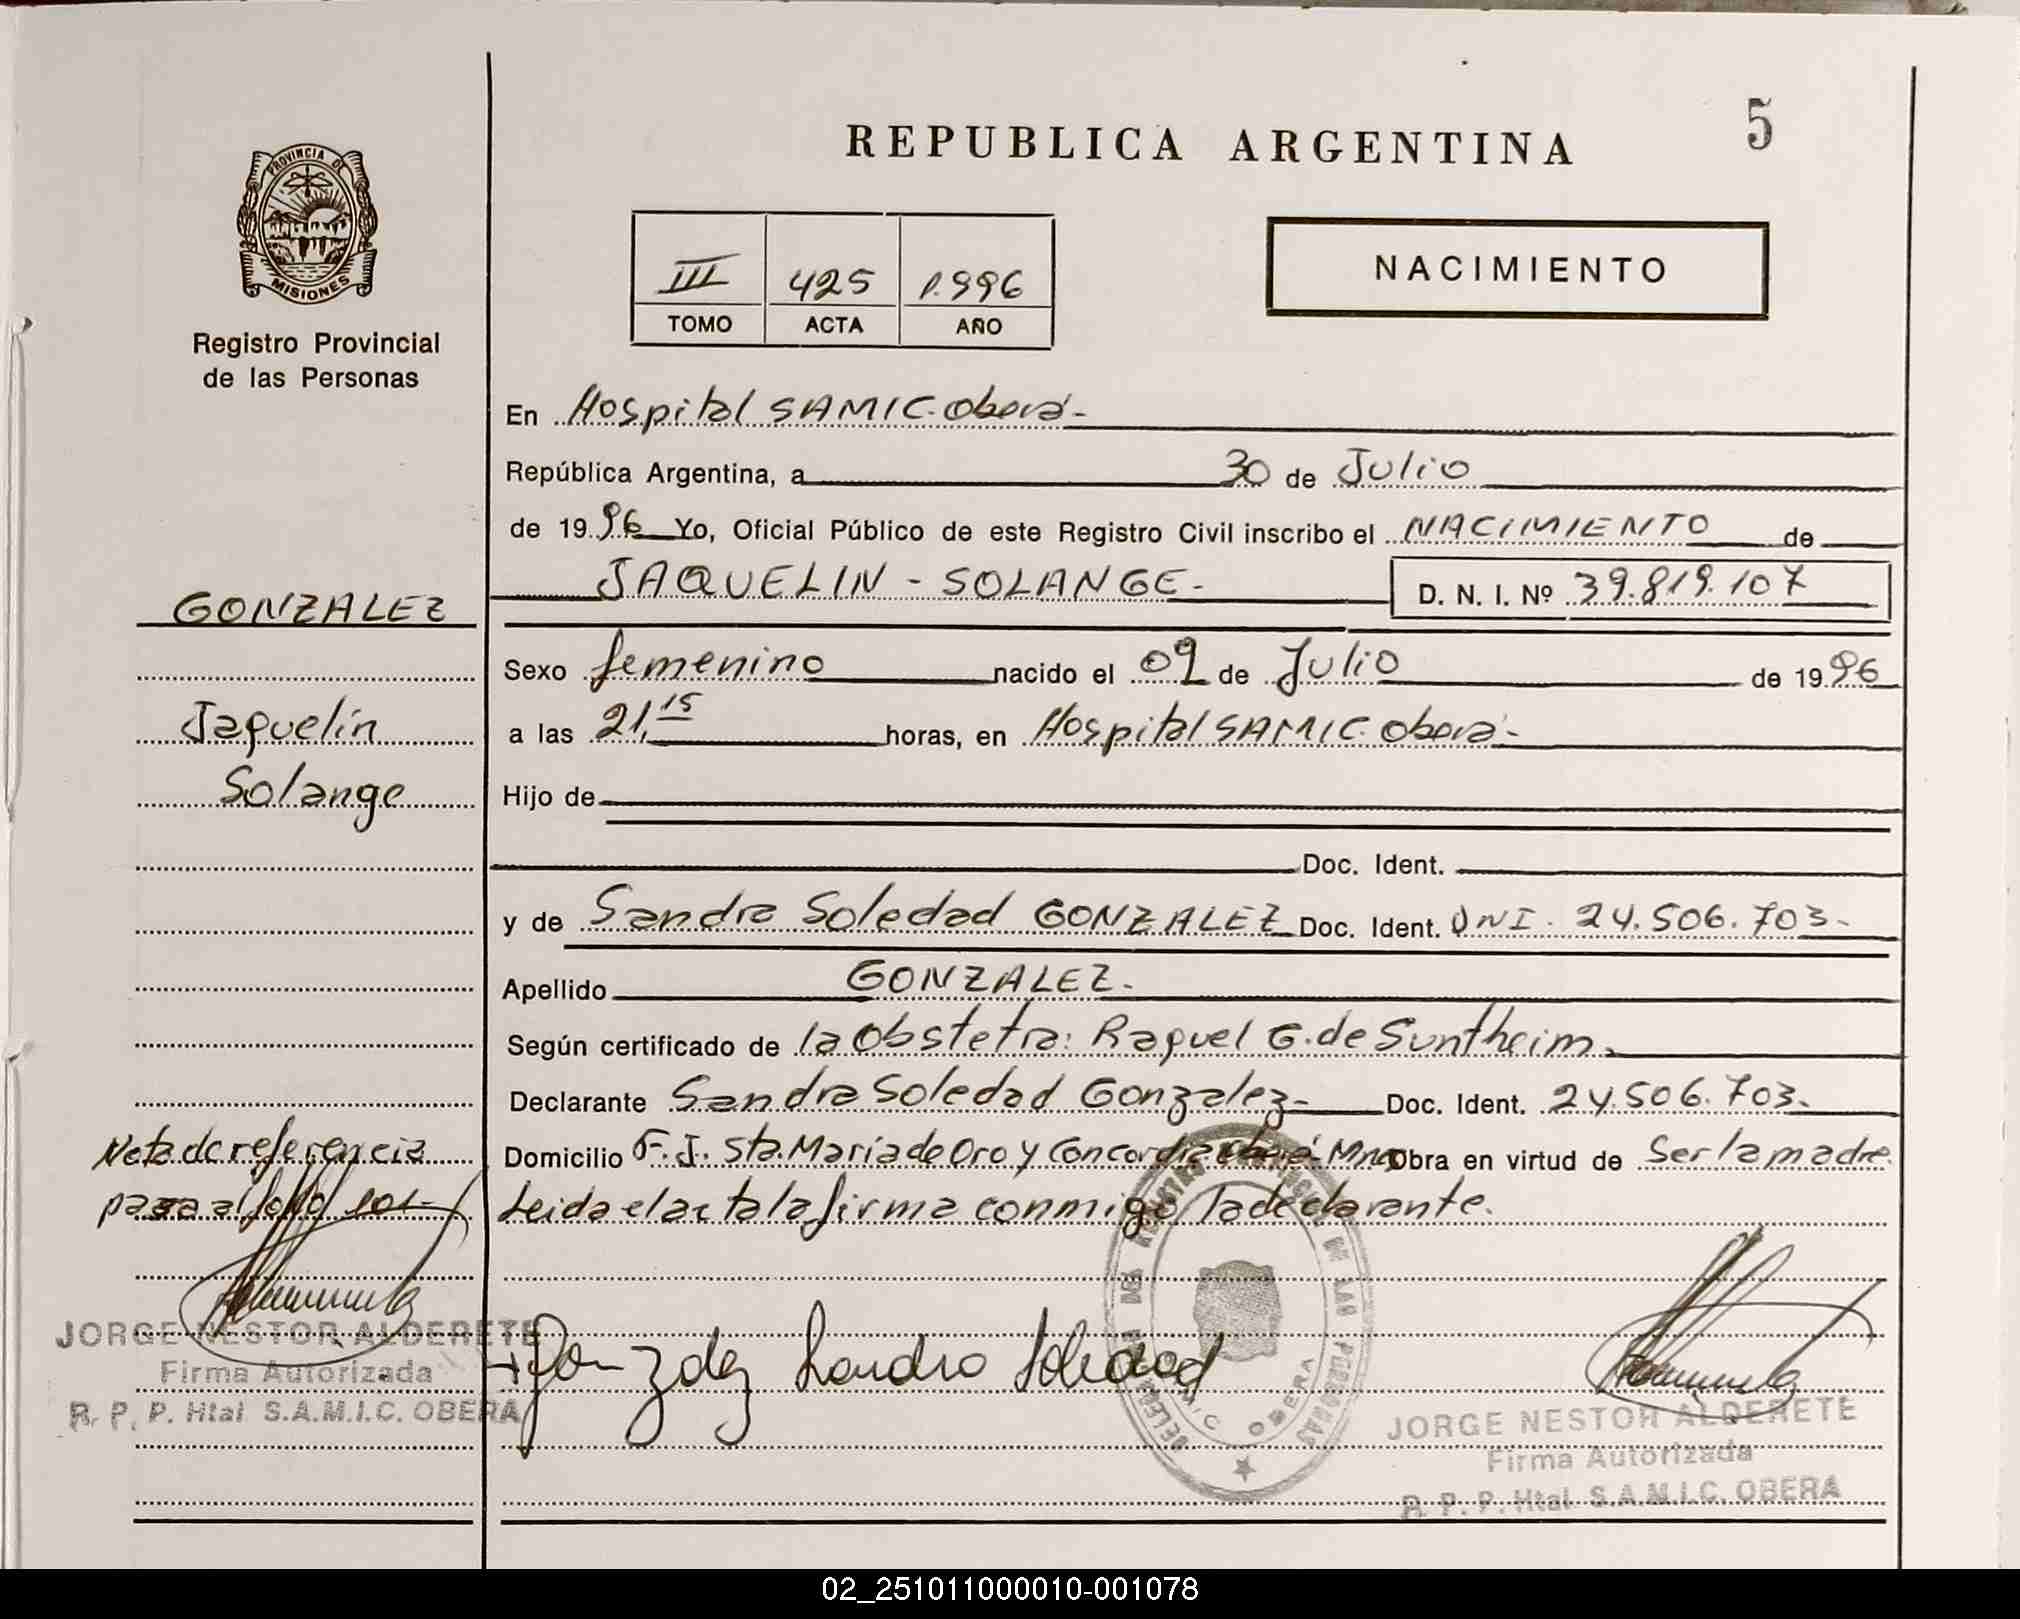 REPUBLICA ARGENTINA
5
PROVINCIA DE
MISIONES
Registro Provincial
de las Personas
III 425 1.996
TOMO ACTA AÑO
NACIMIENTO
En Hospital SAMIC. Oberá-
República Argentina, a 30 de Julio
de 19 96 Yo, Oficial Público de este Registro Civil inscribo el NACIMIENTO de
JAQUELIN - SOLANGE- D. N. I. Nº 39.819.107
GONZALEZ
Sexo femenino nacido el 09 de Julio de 19 96
Jaquelin
a las 21,15 horas, en Hospital SAMIC. Oberá-
Solange
Hijo de
Doc. Ident.
y de Sandra Soledad GONZALEZ Doc. Ident. DNI. 24.506.703-
Apellido GONZALEZ.
Según certificado de la Obstetra: Raquel G. de Suntheim.
Declarante Sandra Soledad Gonzalez- Doc. Ident. 24.506.703.
Nota de referencia
Domicilio F. J. Sta. María de Oro y Concordia Oberá Mnes Obra en virtud de Ser la madre
pasa al folio 101-
Leida el acta la firma conmigo la declarante.
JORGE NESTOR ALDERETE
Firma Autorizada
R. P. P. Htal S.A.M.I.C. OBERA
Gonzalez Sandra Soledad
DELEGACION DEL REGISTRO PROVINCIAL DE LAS PERSONAS
OBERA
JORGE NESTOR ALDERETE
Firma Autorizada
R. P. P. Htal S.A.M.I.C. OBERA
02_251011000010-001078